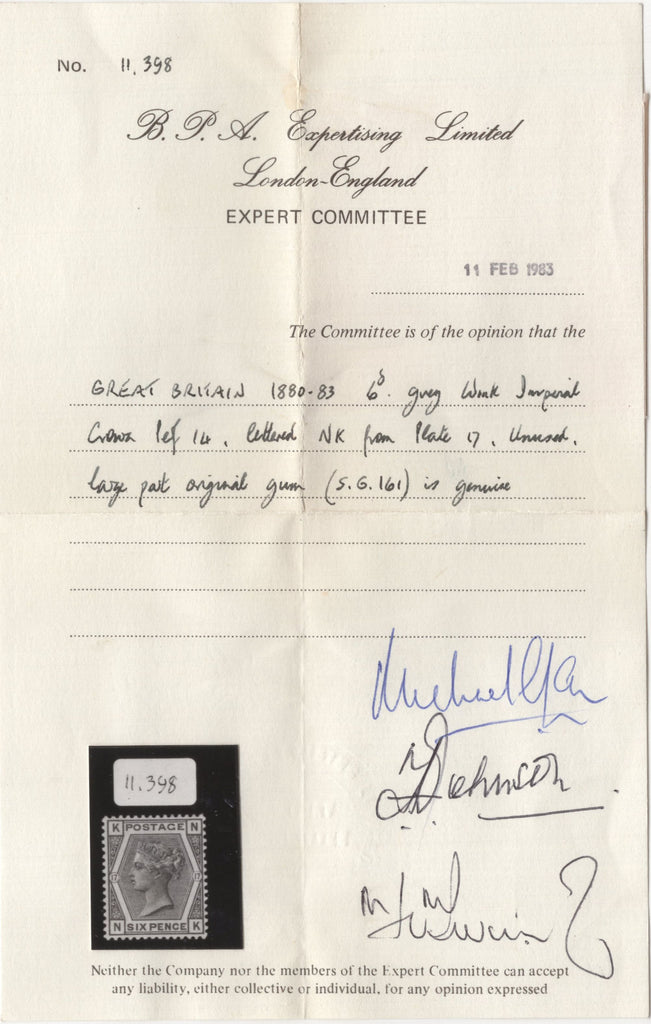 No. 11,398
B. P. A. Expertising Limited
London-England
EXPERT COMMITTEE
11 FEB 1983
The Committee is of the opinion that the
GREAT BRITAIN 1880-83 6d. grey Wmk Imperial
Crown Perf 14, lettered NK from Plate 17, Unused,
large part original gum (S.G.161) is genuine
Johnson
11,398
K POSTAGE N
17 17
N SIX PENCE K
Neither the Company nor the members of the Expert Committee can accept
any liability, either collective or individual, for any opinion expressed